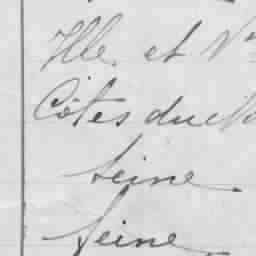 Ille et V
Côtes du N
Seine
Seine